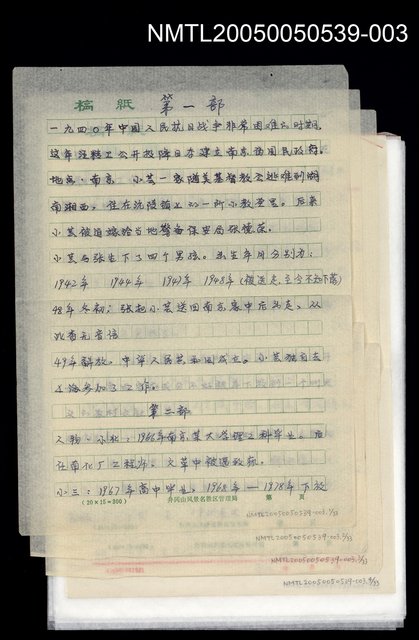 NMTL20050050539-003
稿 纸 第一部
一九四〇年中国人民抗日战争非常困难的时期,
这年汪精卫公开投降日本建立南京伪国民政府。
地点:南京 小芸一家随美基督教会逃难到湖
南湘西。住在沅陵镇上的一所小教堂里。后来
小芸被迫嫁给当地警备保安局张
小芸与张生下了四个男孩。出生年月分别为:
1942年 1944年 1947年 1948年(被送走,至今不知下落)
48年冬初:张把小芸送回南京家中后出走。从
此杳无音信
49年解放,中华人民共和国成立。小芸独自去
上海参加了工作。
第二部
人物:小北:1966年南京某大学理工科毕业。后
任南化厂工程师。文革中被
小三:1967年高中毕业。1968年—1978年下放
(20×15=300) 井冈山风景名胜区管理局 第 页
NMTL20050050539-003.1/33
NMTL20050050539-003.2/33
NMTL20050050539-003.